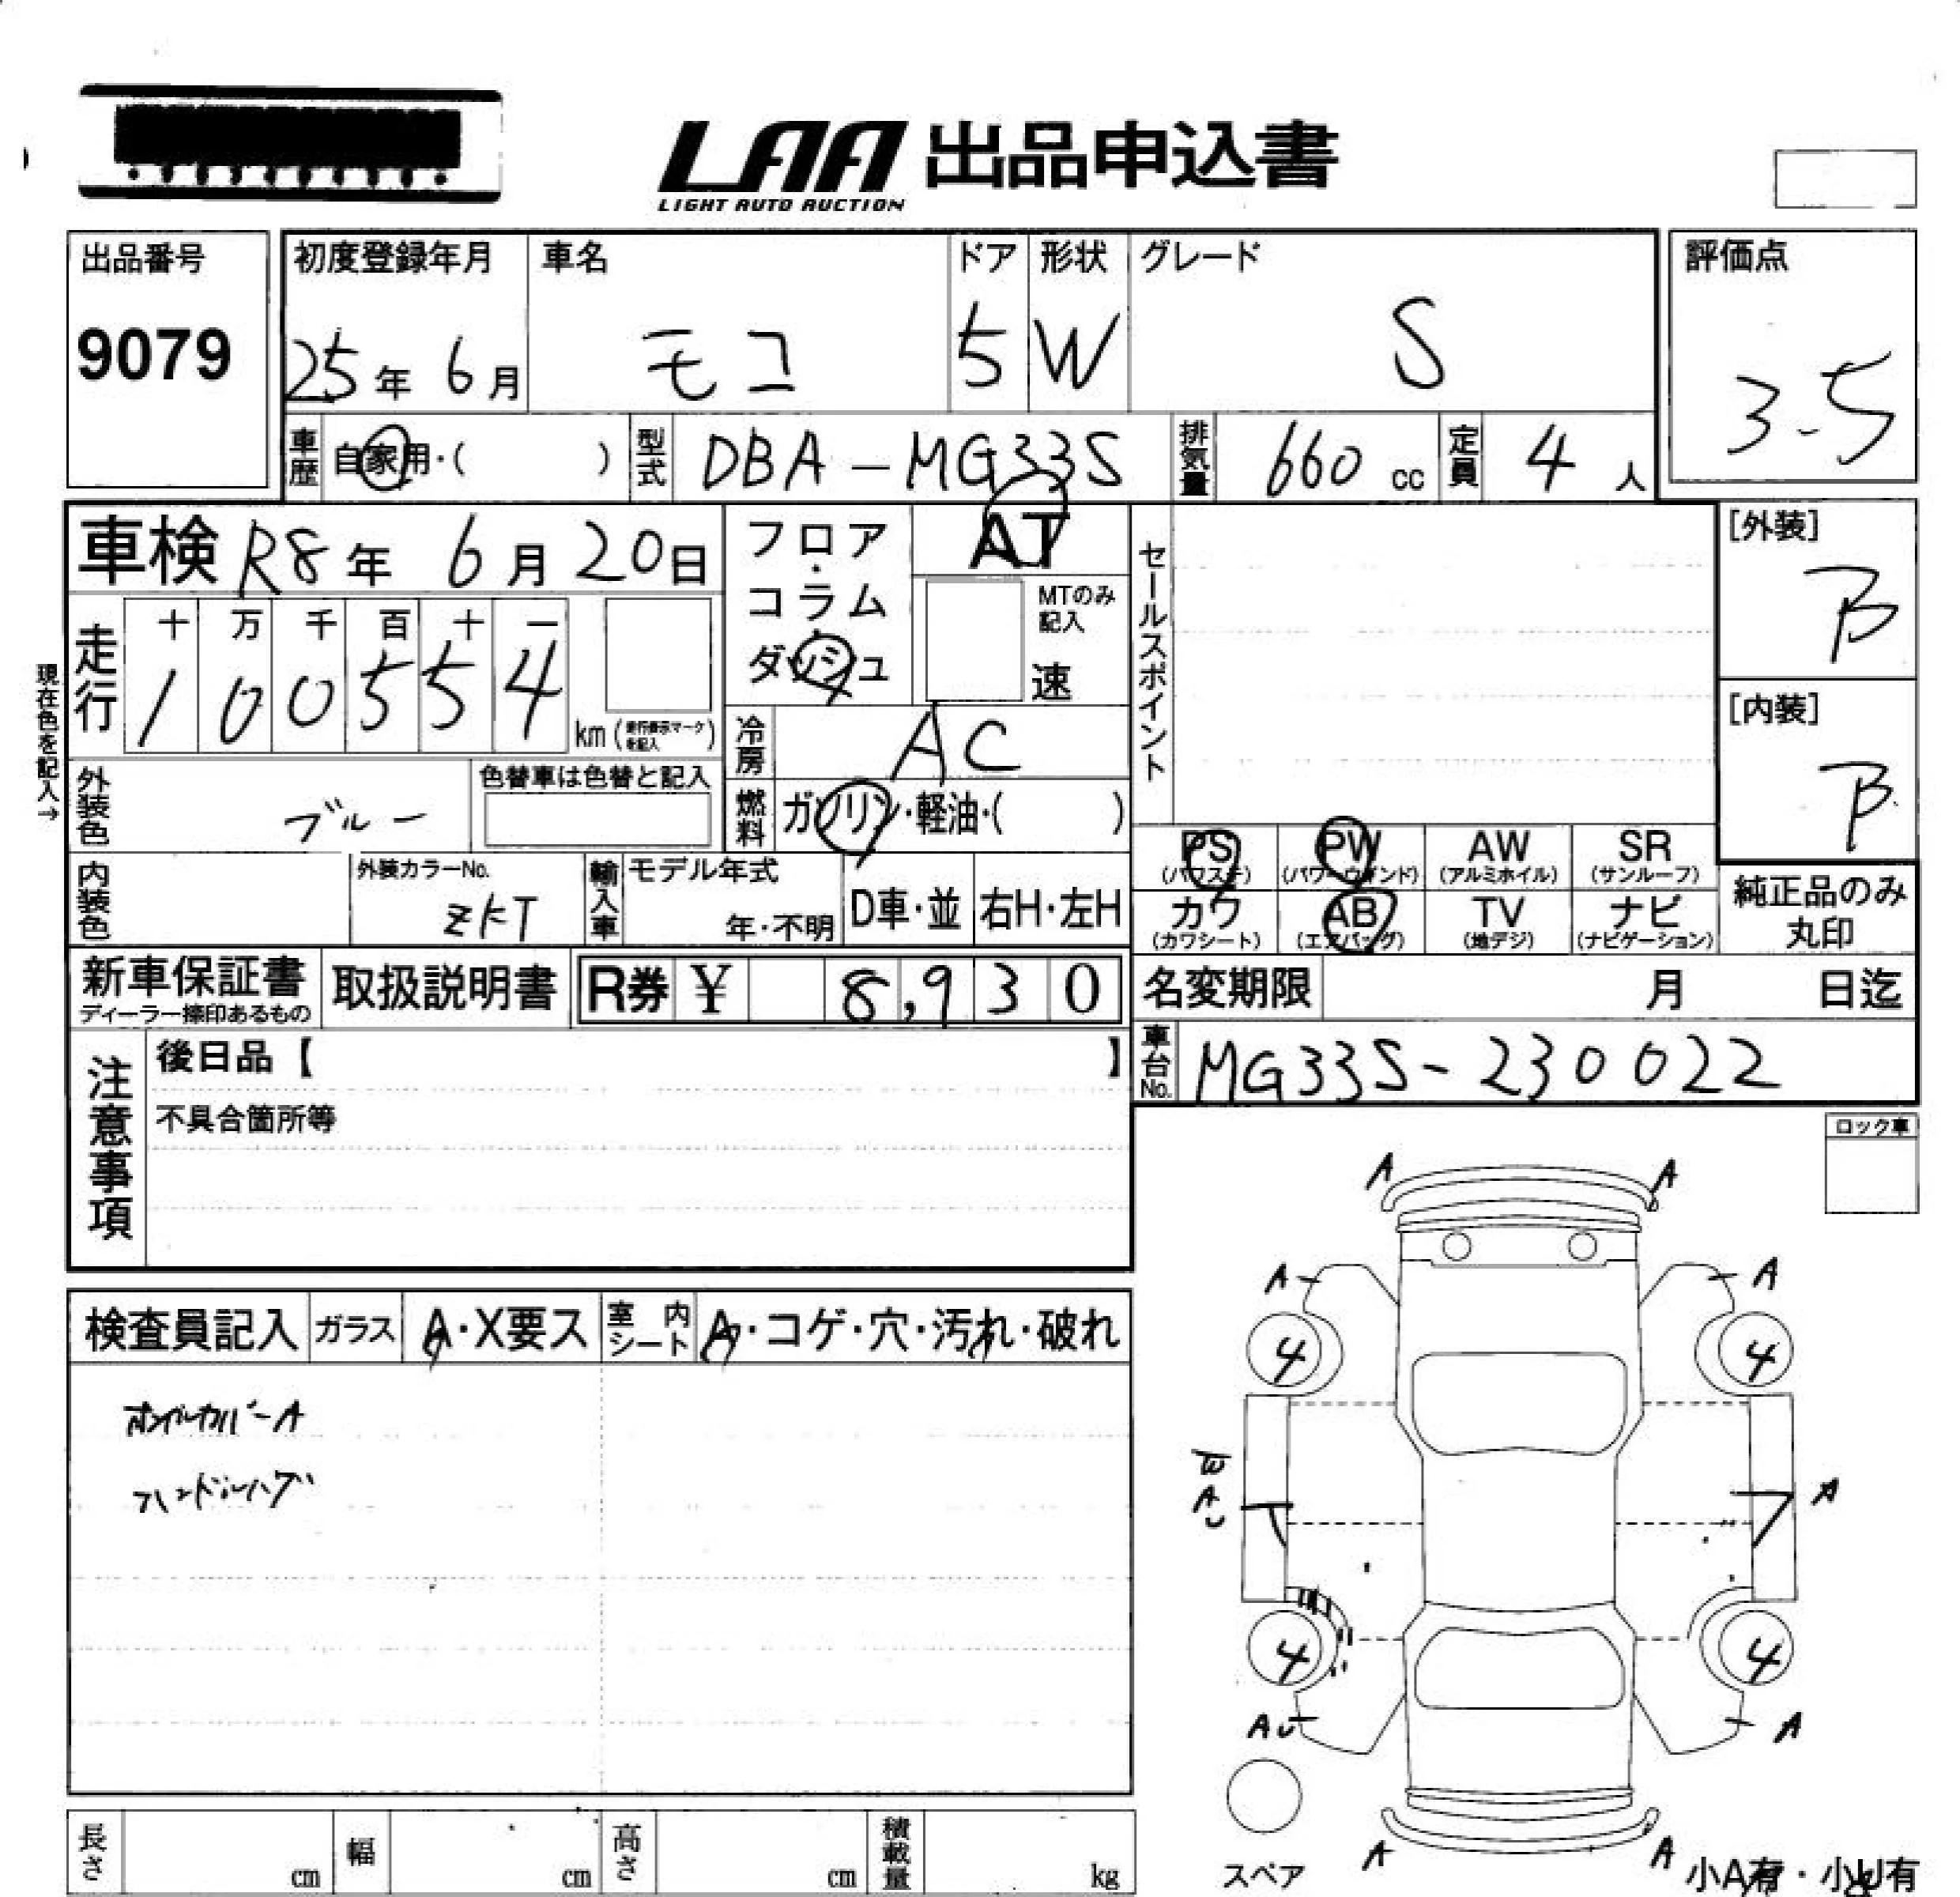 LAA 出品申込書
LIGHT AUTO AUCTION
出品番号
9079
初度登録年月
25年 6月
車名
モコ
ドア
5
形状
W
グレード
S
評価点
3.5
車歴 自家用・( )
型式 DBA-MG33S
排気量 660 cc
定員 4 人
車検 R8年 6月 20日
フロア・コラム・ダッシュ
AT
MTのみ記入
速
セールスポイント
[外装]
B
[内装]
B
現在色を記入→
走行
十 万 千 百 十 一
1 0 0 5 5 4
km (走行表示マークを記入)
冷房 AC
燃料 ガソリン・軽油・( )
外装色 ブルー
色替車は色替と記入
内装色
外装カラーNo.
ZKT
輸入車
モデル年式
年・不明
D車・並
右H・左H
PS (パワステ)
PW (パワーウインド)
AW (アルミホイル)
SR (サンルーフ)
カワ (カワシート)
AB (エアバッグ)
TV (地デジ)
ナビ (ナビゲーション)
純正品のみ丸印
新車保証書
ディーラー捺印あるもの
取扱説明書
R券 ¥ 8,930
名変期限 月 日迄
車台No. MG33S-230022
注意事項
後日品【 】
不具合箇所等
ロック車
検査員記入
ガラス A・X要ス
室内シート A・コゲ・穴・汚れ・破れ
ホイールカバーA
ハンドルハゲ
A A
A A
4 4
A
A
4 4
A A
スペア
A A
小A有・小U有
長さ cm
幅 cm
高さ cm
積載量 kg